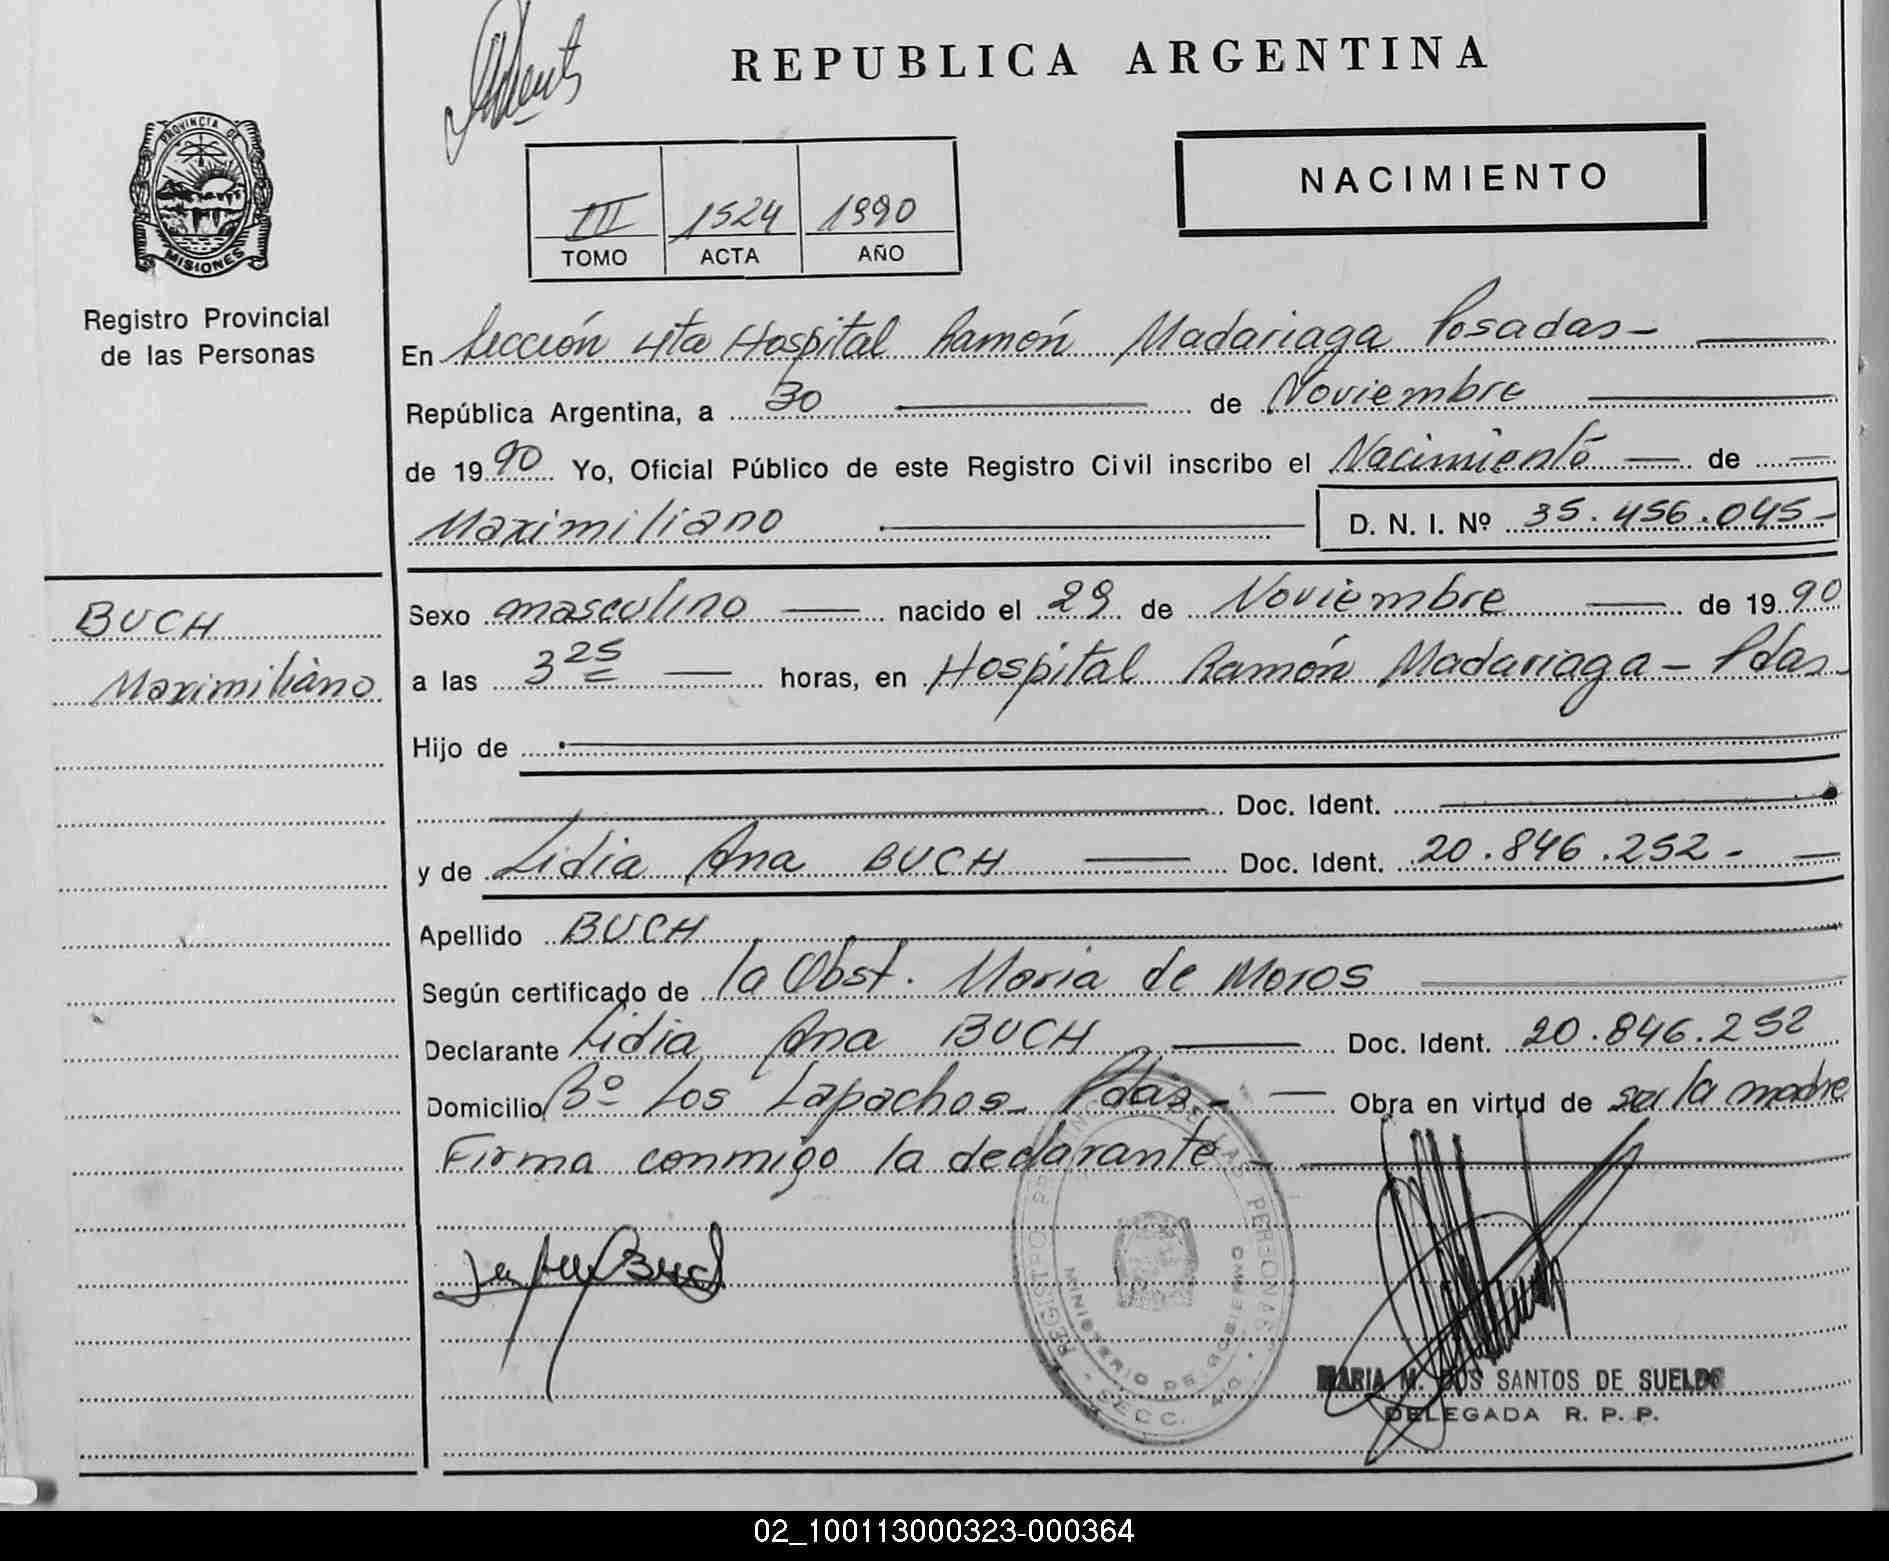 REPUBLICA ARGENTINA
PROVINCIA DE
MISIONES
Registro Provincial
de las Personas
III 1524 1990
TOMO ACTA AÑO
NACIMIENTO
En Sección 4ta Hospital Ramón Madariaga Posadas-
República Argentina, a 30 de Noviembre
de 1990 Yo, Oficial Público de este Registro Civil inscribo el Nacimiento de
Maximiliano D. N. I. Nº 35.456.045-
BUCH
Maximiliano
Sexo masculino nacido el 29 de Noviembre de 1990
a las 3 25 horas, en Hospital Ramón Madariaga - Pdas.
Hijo de
Doc. Ident.
y de Lidia Ana BUCH Doc. Ident. 20.846.252-
Apellido BUCH
Según certificado de la Obst. Maria de Moros
Declarante Lidia Ana BUCH Doc. Ident. 20.846.252
Domicilio Bº Los Lapachos- Pdas.- Obra en virtud de ser la madre
Firma conmigo la declarante-
Buch
REGISTRO DE LAS PERSONAS
MINISTERIO DE GOBIERNO
SECC. 4ta
MARIA M. DOS SANTOS DE SUELDO
DELEGADA R. P. P.
02_100113000323-000364